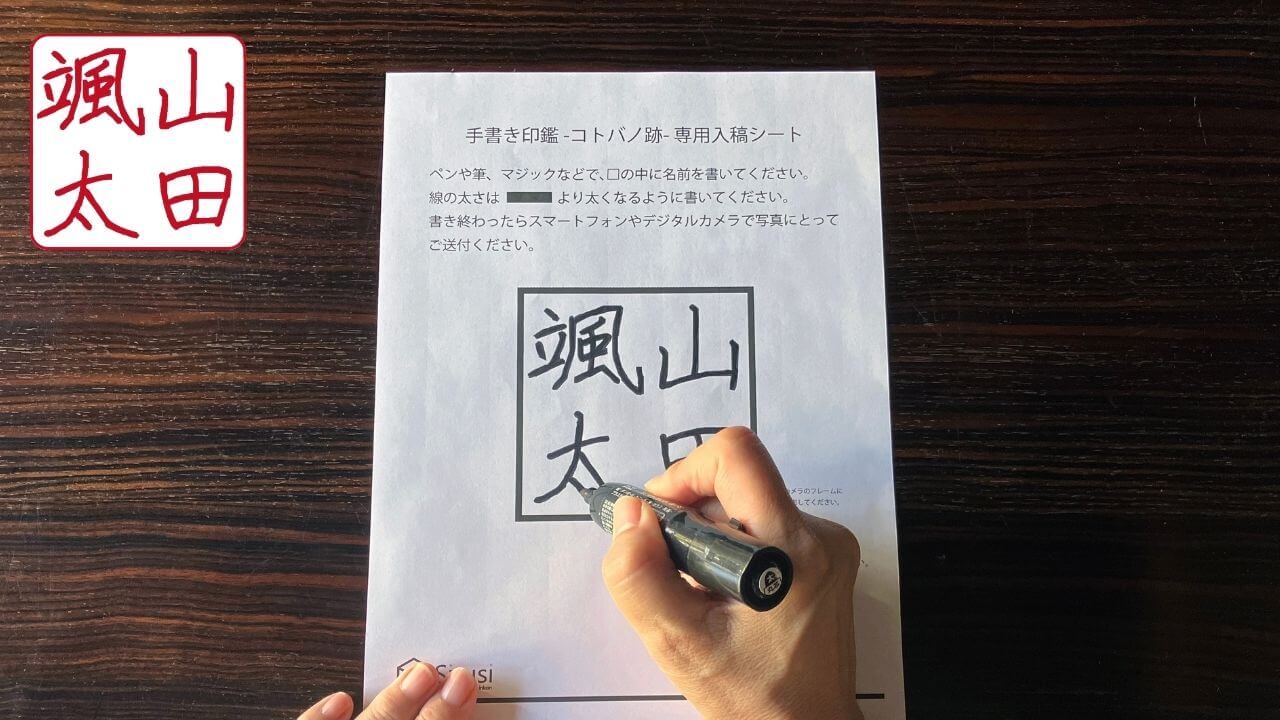 山田
颯太
手書き印鑑 -コトバノ跡- 専用入稿シート
ペンや筆、マジックなどで、□の中に名前を書いてください。
線の太さは より太くなるように書いてください。
書き終わったらスマートフォンやデジタルカメラで写真にとって
ご送付ください。
山田
颯太
メラのフレームに
してください。
inkan